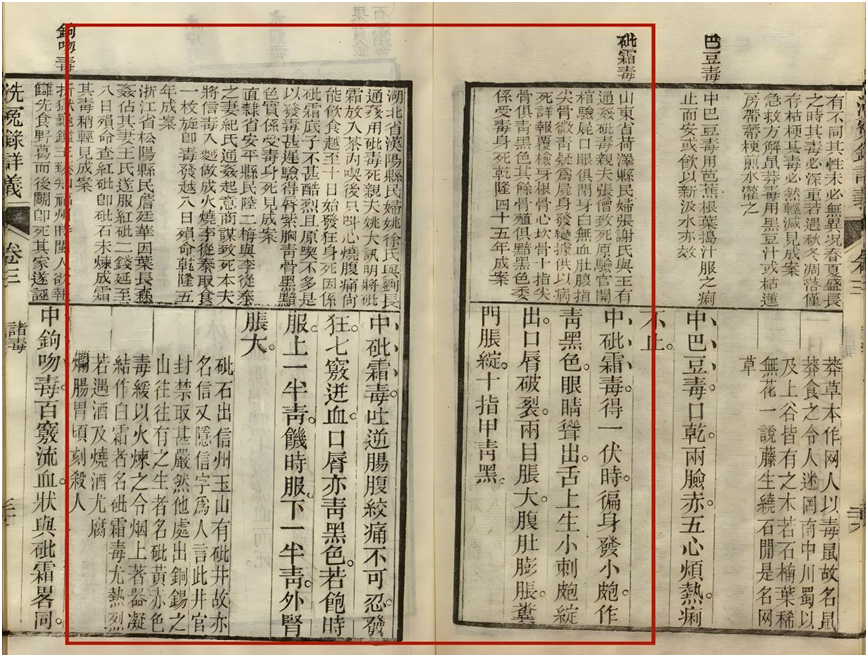 巴豆毒
砒霜毒
有不同其性未必無異況春夏盛長
之時其毒必深重若遇秋冬凋落僅
存枯梗其毒必然輕減見成案
急救方解鼠莽毒用黑豆汁或枯蓮
房帶蒂梗煎水灌之
中巴豆毒用芭蕉根葉搗汁服之痢
止而安或飲以新汲水亦效
山東省荷澤縣民婦張謝氏與王有
通姦砒毒親夫張僧致死原驗官開
棺驗屍口眼俱開身白無血肚腹指
尖骨微靑疑為屍身發變據供以病
死詳報覆檢牙根骨心坎骨十指尖
骨俱靑黑色其餘骨殖俱黯黑色委
係受毒身死乾隆四十五年成案
莽草本作网人以毒鼠故名鼠
莽食之令人迷罔南中川蜀以
及上谷皆有之木若石楠葉稀
無花一說藤生繞石間是名网
草
中巴豆毒口乾兩臉赤五心煩熱痢
不止。
中砒霜毒。得一伏時。徧身發小皰。作
靑黑色。眼睛聳出。舌上生小刺皰綻
出。口脣破裂。兩目脹大。腹肚膨脹。糞
門脹綻。十指甲靑黑。
鉤吻毒
湖北省漢陽縣民婦姚徐氏與劉長
通姦用砒毒死親夫姚大訓明將砒
霜放入茶內喫後只叫心燒腹痛尚
能飲食越至十日始發狂身死因係
砒霜底子不甚酷烈且原喫不多是
以發毒甚遲驗得脣紫胸靑骨黑黯
色實係受毒身死見成案
直隸省安平縣民陸二梅與李從泰
之妻紀氏通姦起意商謀致死本夫
將信毒入麪做成火燒李從泰取食
一枚旋卽毒發越八日殞命乾隆五
年成案
浙江省松陽縣民詹廷華因葉長養
姦佔其妻王氏遂服紅砒二錢延至
八日殞命查紅砒卽砒石未煉成霜
其毒稍輕見成案
折獄龜鑑王臻知福州時閩人欲報
讎先食野葛而後鬭卽死其家遂誣
中砒霜毒。吐逆腸腹絞痛不可忍。發
狂。七竅迸血。口脣亦靑黑色。若飽時
服。上一半靑。饑時服。下一半靑。外腎
脹大。
砒石出信州玉山有砒井故亦
名信又隱信字爲人言此井官
封禁取甚嚴然他處出銅錫之
山往往有之生者名砒黃赤色
毒緩以火煉之令烟上著器凝
結作白霜者名砒霜毒尤熱烈
若遇酒及燒酒尤腐
爛腸胃頃刻殺人
中鉤吻毒。百竅流血。狀與砒霜畧同。
洗冤錄詳義 卷三 諸毒